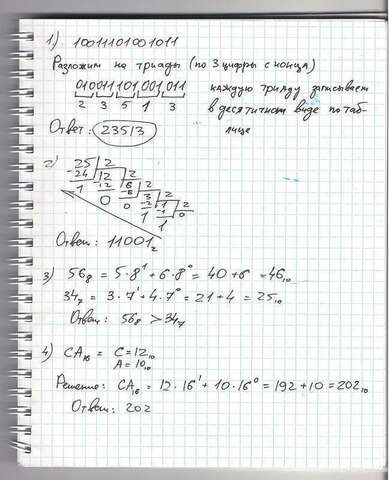 1) 10011101001011
Разложим на триады (по 3 цифры с конца)
010 011 101 001 011 каждую триаду записываем
2 3 5 1 3 в десятичном виде по таб-
Ответ: 23513 лице
2) 25 2
-24 12 2
1 -12 6 2
0 -6 3 2
0 -2 1 2
1 1 0
Ответ: 11001₂
3) 56₈ = 5·8¹ + 6·8⁰ = 40+6 = 46₁₀
34₇ = 3·7¹ + 4·7⁰ = 21+4 = 25₁₀
Ответ: 56₈ > 34₇
4) CA₁₆ = C = 12₁₀
A = 10₁₀
Решение: CA₁₆ = 12·16¹ + 10·16⁰ = 192+10 = 202₁₀
Ответ: 202